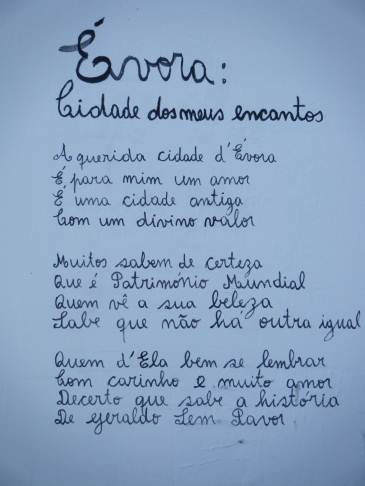 Évora:
Cidade dos meus encantos
A querida cidade d'Évora
É para mim um amor
É uma cidade antiga
Com um divino valor
Muitos sabem de certeza
Que é Património Mundial
Quem vê a sua beleza
Sabe que não há outra igual
Quem d'Ela bem se lembrar
Com carinho e muito amor
Decerto que sabe a história
De Geraldo Sem Pavor